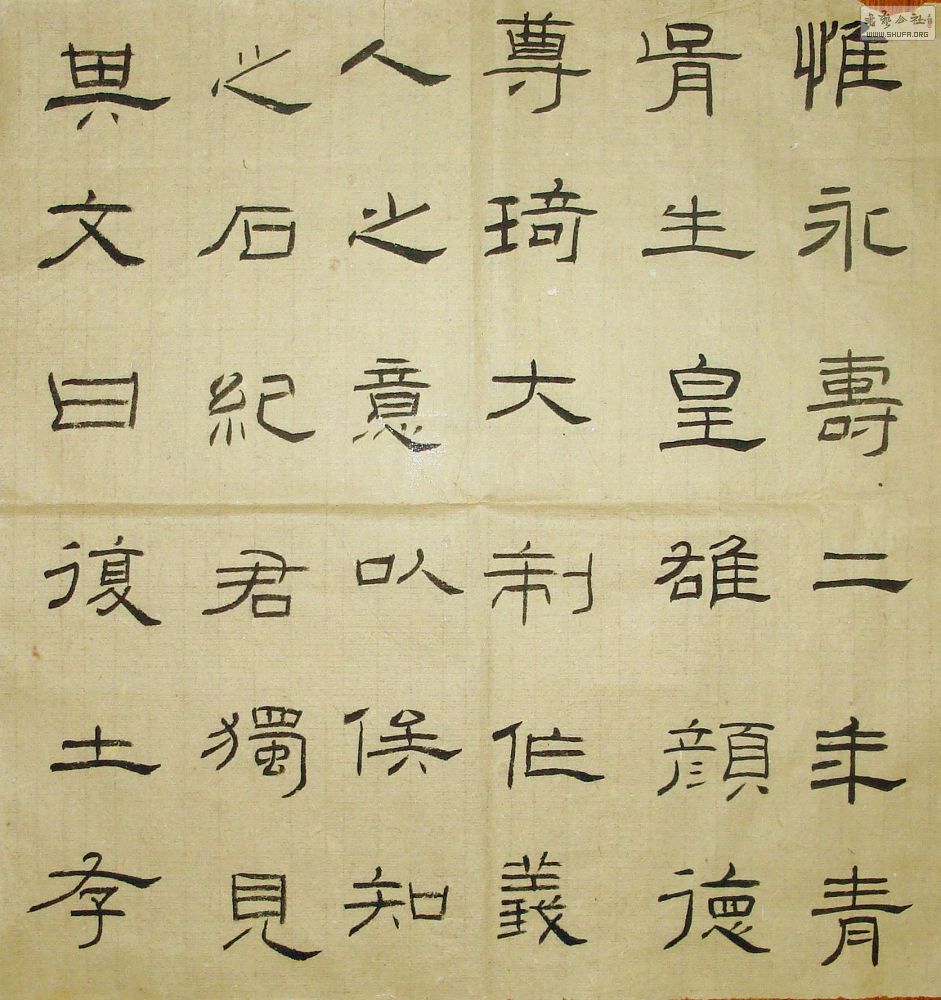 惟永壽二年青
胥生皇雄顏德
尊琦大制作義
人之意以俟知
之石紀君獨見
異文曰復土孝
書藝公社
WWW.SHUFA.ORG